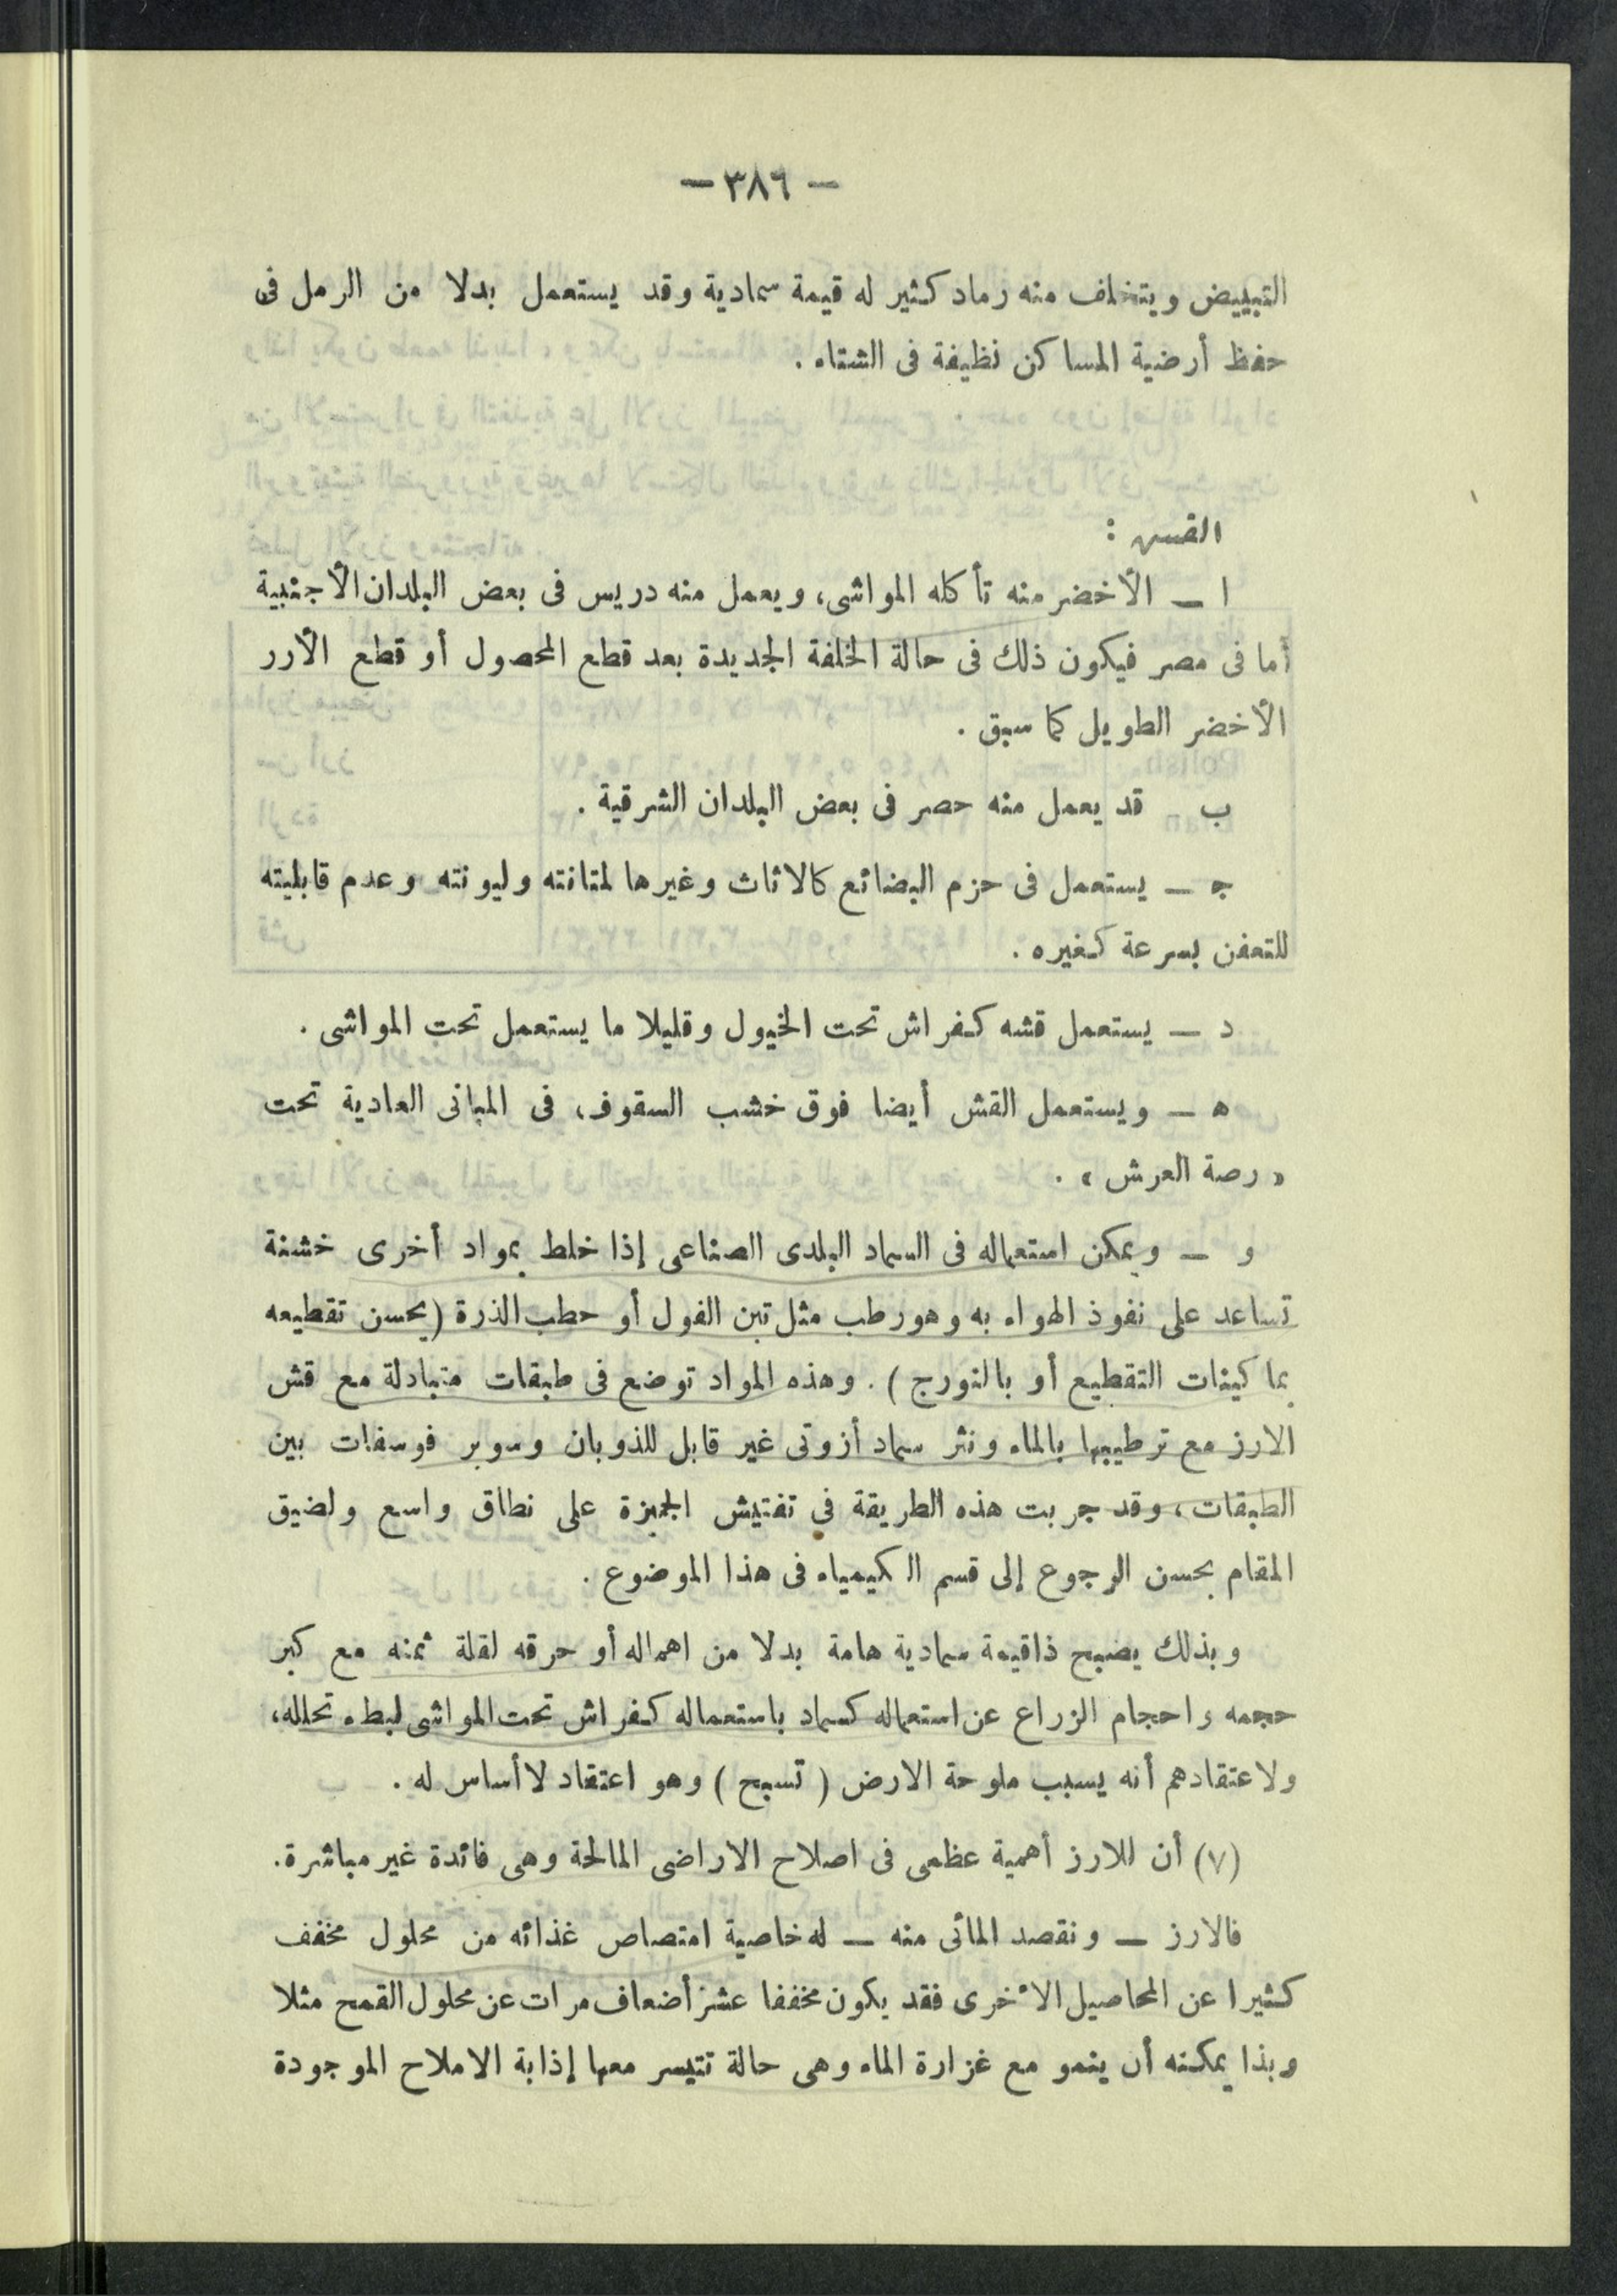 — ٣٨٦ —
التبييض ويتخلف منه رماد كثير له قيمة سمادية وقد يستعمل بدلا من الرمل فى
حفظ أرضية المساكن نظيفة فى الشتاء .
القش :
ا — الأخضر منه تأكله المواشى، ويعمل منه دريس فى بعض البلدان الأجنبية
أما فى مصر فيكون ذلك فى حالة الخلفة الجديدة بعد قطع المحصول أو قطع الأرر
الأخضر الطويل كما سبق .
ب قد يعمل منه حصر فى بعض البلدان الشرقية .
ج — يستعمل فى حزم البضائع كالاثاث وغيرها لمتانته وليونته وعدم قابليته
للتعفن بسرعة كغيره .
د — يستعمل قشه كفراش تحت الخيول وقليلا ما يستعمل تحت المواشى .
ه — ويستعمل القش أيضا فوق خشب السقوف، فى المبانى العادية تحت
« رصة العرش » .
و — ويمكن استعماله فى السماد البلدى الصناعى إذا خلط بمواد أخرى خشنة
تساعد على نفوذ الهواء به وهو رطب مثل تبن الفول أو حطب الذرة (يحسن تقطيعه
بماكينات التقطيع أو بالنورج ) . وهذه المواد توضع فى طبقات متبادلة مع قش
الارز مع ترطيبها بالماء ونثر سماد أزوتى غير قابل للذوبان وسوبر فوسفات بين
الطبقات، وقد جربت هذه الطريقة فى تفتيش الجميزة على نطاق واسع ولضيق
المقام يحسن الرجوع إلى قسم الكيمياء فى هذا الموضوع .
وبذلك يصبح ذا قيمة سمادية هامة بدلا من اهماله أو حرقه لقلة ثمنه مع كبر
حجمه واحجام الزراع عن استعماله كسماد باستعماله كفراش تحت المواشى لبطء تحلله،
ولاعتقادهم أنه يسبب ملوحة الارض ( تسبح ) وهو اعتقاد لا أساس له .
(٧) أن للارز أهمية عظمى فى اصلاح الاراضى المالحة وهى فائدة غير مباشرة.
فالارز — ونقصد المائى منه — له خاصية امتصاص غذائه من محلول مخفف
كثيرا عن المحاصيل الأخرى فقد يكون مخففا عشر أضعاف مرات عن محلول القمح مثلا
وبذا يمكنه أن ينمو مع غزارة الماء وهى حالة تتيسر معها إذابة الاملاح الموجودة